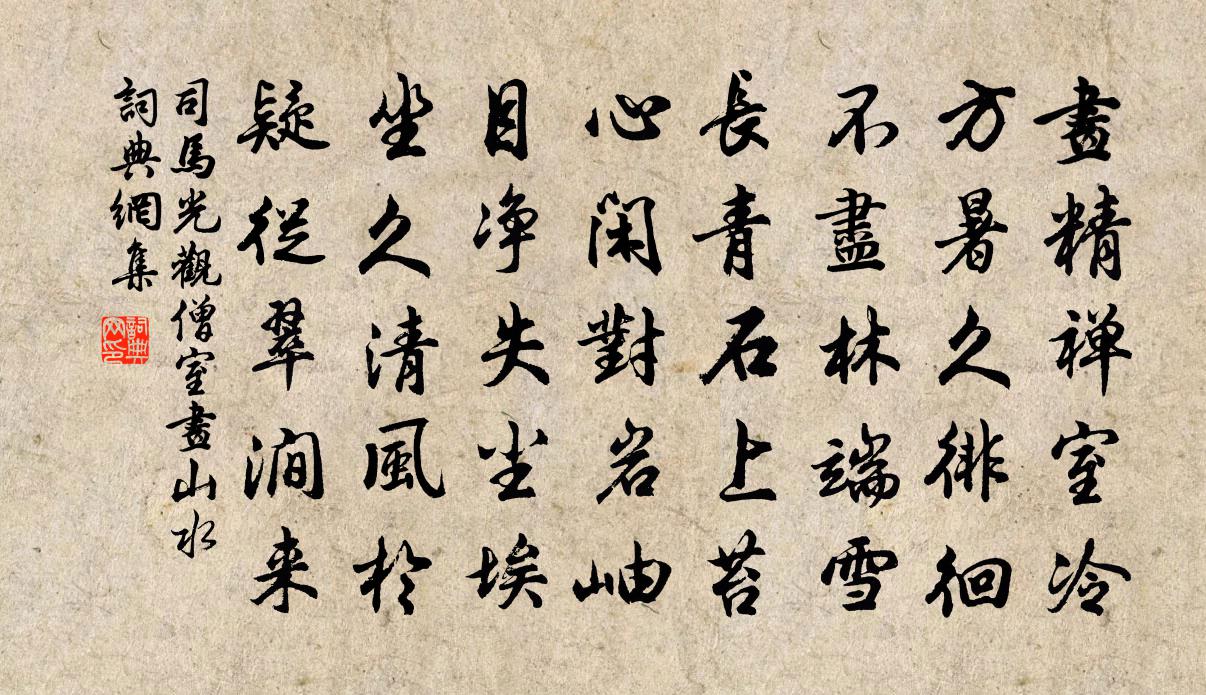 畫精禅室冷
方暑久徘徊
不盡林端雪
長青石上苔
心閑對岩岫
目净失尘埃
坐久清風於
疑從翠澗来
司馬光觀僧室畫山水
詞典網集
詞典网印